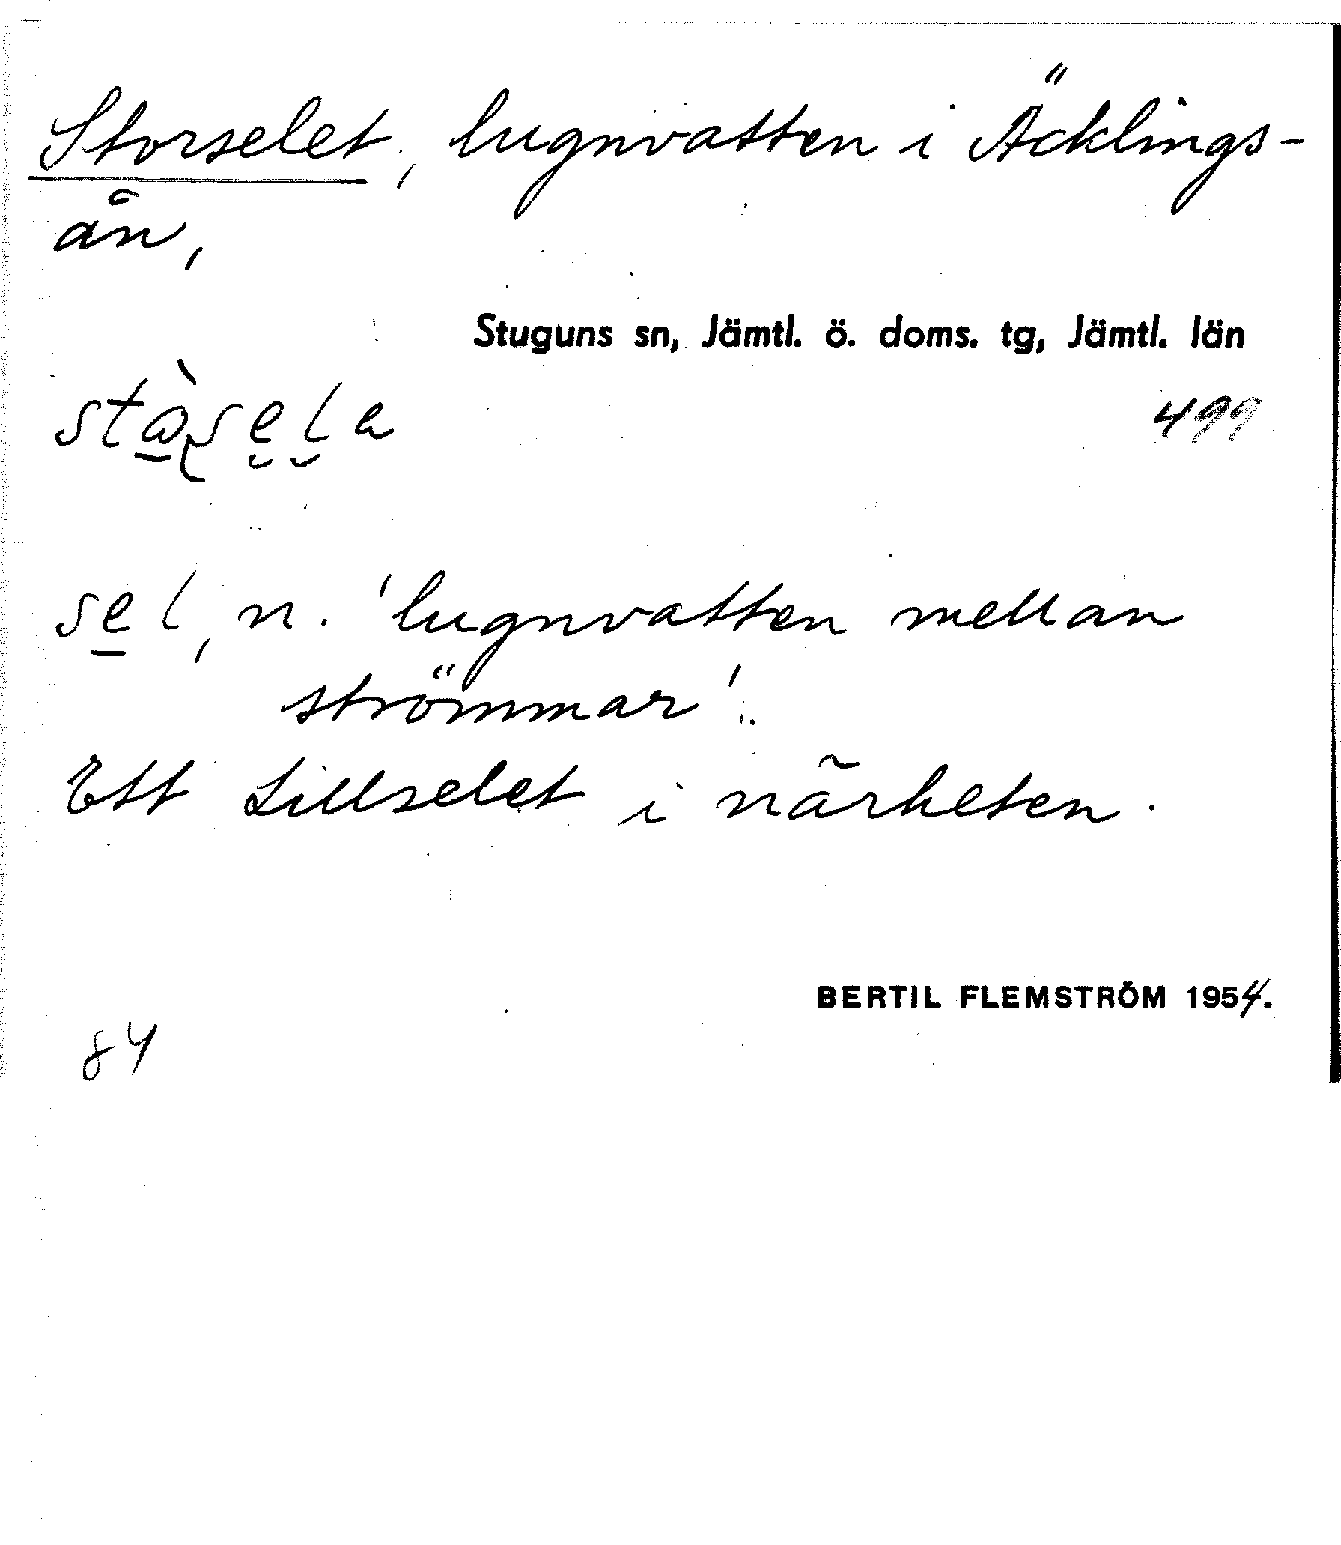 Storselet, lugnvatten i Äcklings-
ån,
Stuguns sn, Jämtl. ö. doms. tg, Jämtl. län
499
sel, n. 'lugnvatten mellan
strömmar'.
Ett Lillselet i närheten.
BERTIL FLEMSTRÖM 1954.
84